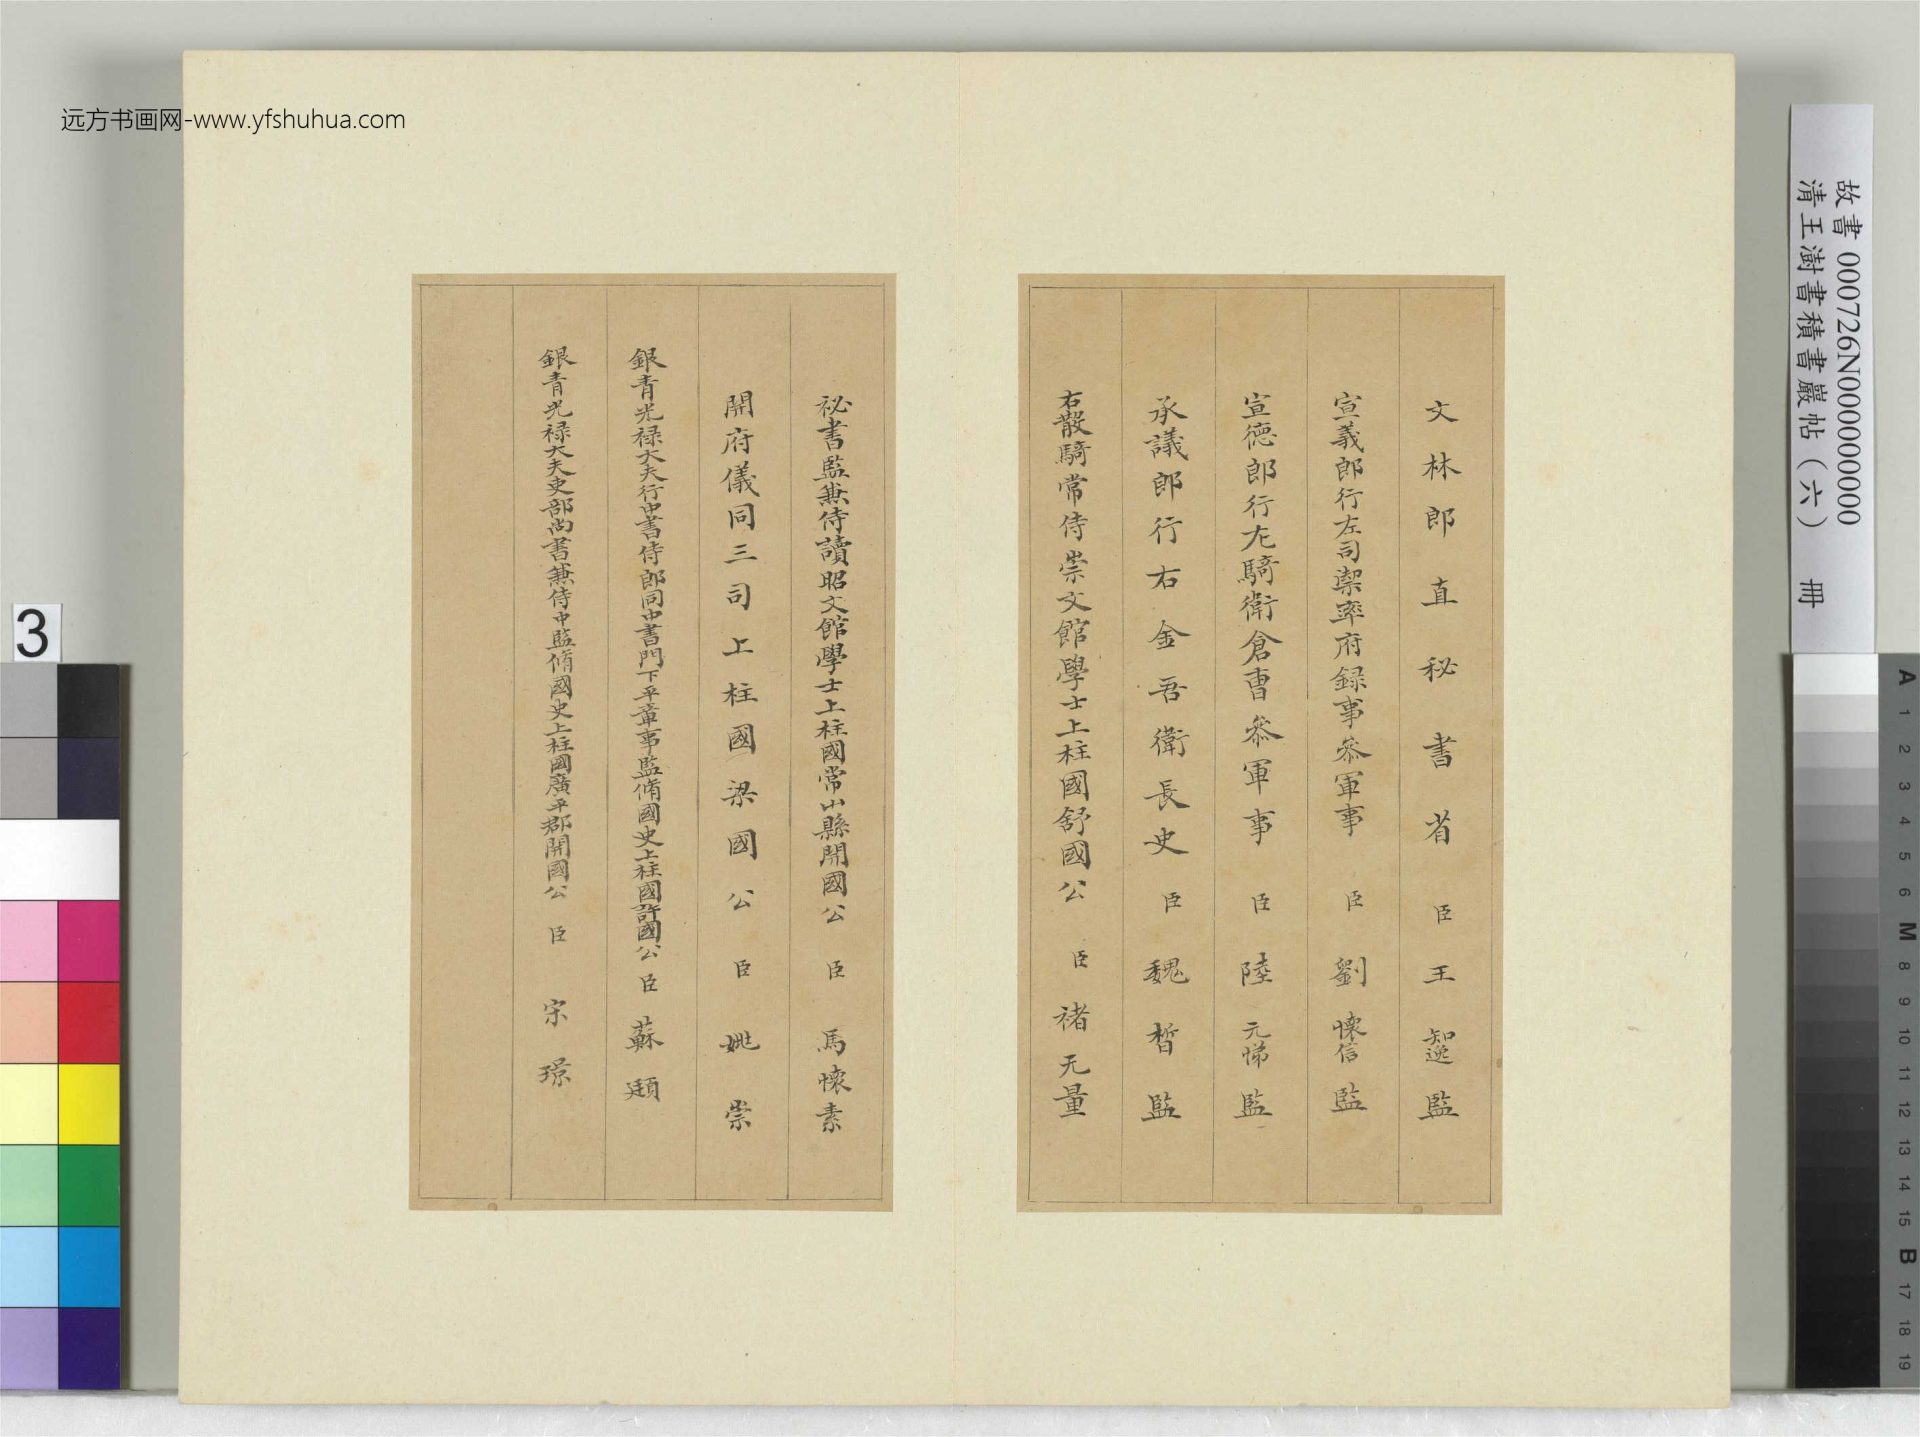 远方书画网-www.yfshuhua.com
故書 00726N000000000
清王澍書積書巖帖（六） 冊
文林郎直秘書省臣王知逸監
宣義郎行左司禦率府録事叅軍事臣劉懷信監
宣德郎行左騎衛倉曹叅軍事臣陸元悌監
承議郎行右金吾衛長史臣魏晳監
右散騎常侍崇文館學士上柱國舒國公臣褚无量
祕書監兼侍讀昭文館學士上柱國常山縣開國公臣馬懷素
開府儀同三司上柱國梁國公臣姚崇
銀青光禄大夫行中書侍郎同中書門下平章事監脩國史上柱國許國公臣蘇頲
銀青光禄大夫吏部尚書兼侍中監脩國史上柱國廣平郡開國公臣宋璟
3
A 1 2 3 4 5 6 M 8 9 10 11 12 13 14 15 B 17 18 19